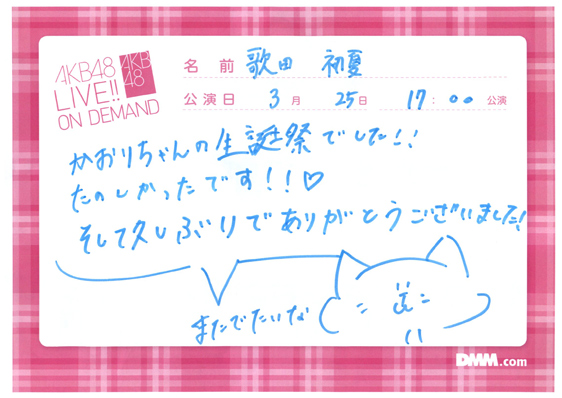 AKB48
LIVE!!
ON DEMAND
AKB
48
名前 歌田 初夏
公演日 3月 25日 17:00 公演
かおりちゃんの生誕祭でした!!
たのしかったです!!♡
そして久しぶりでありがとうございました!
またでたいな
DMM.com